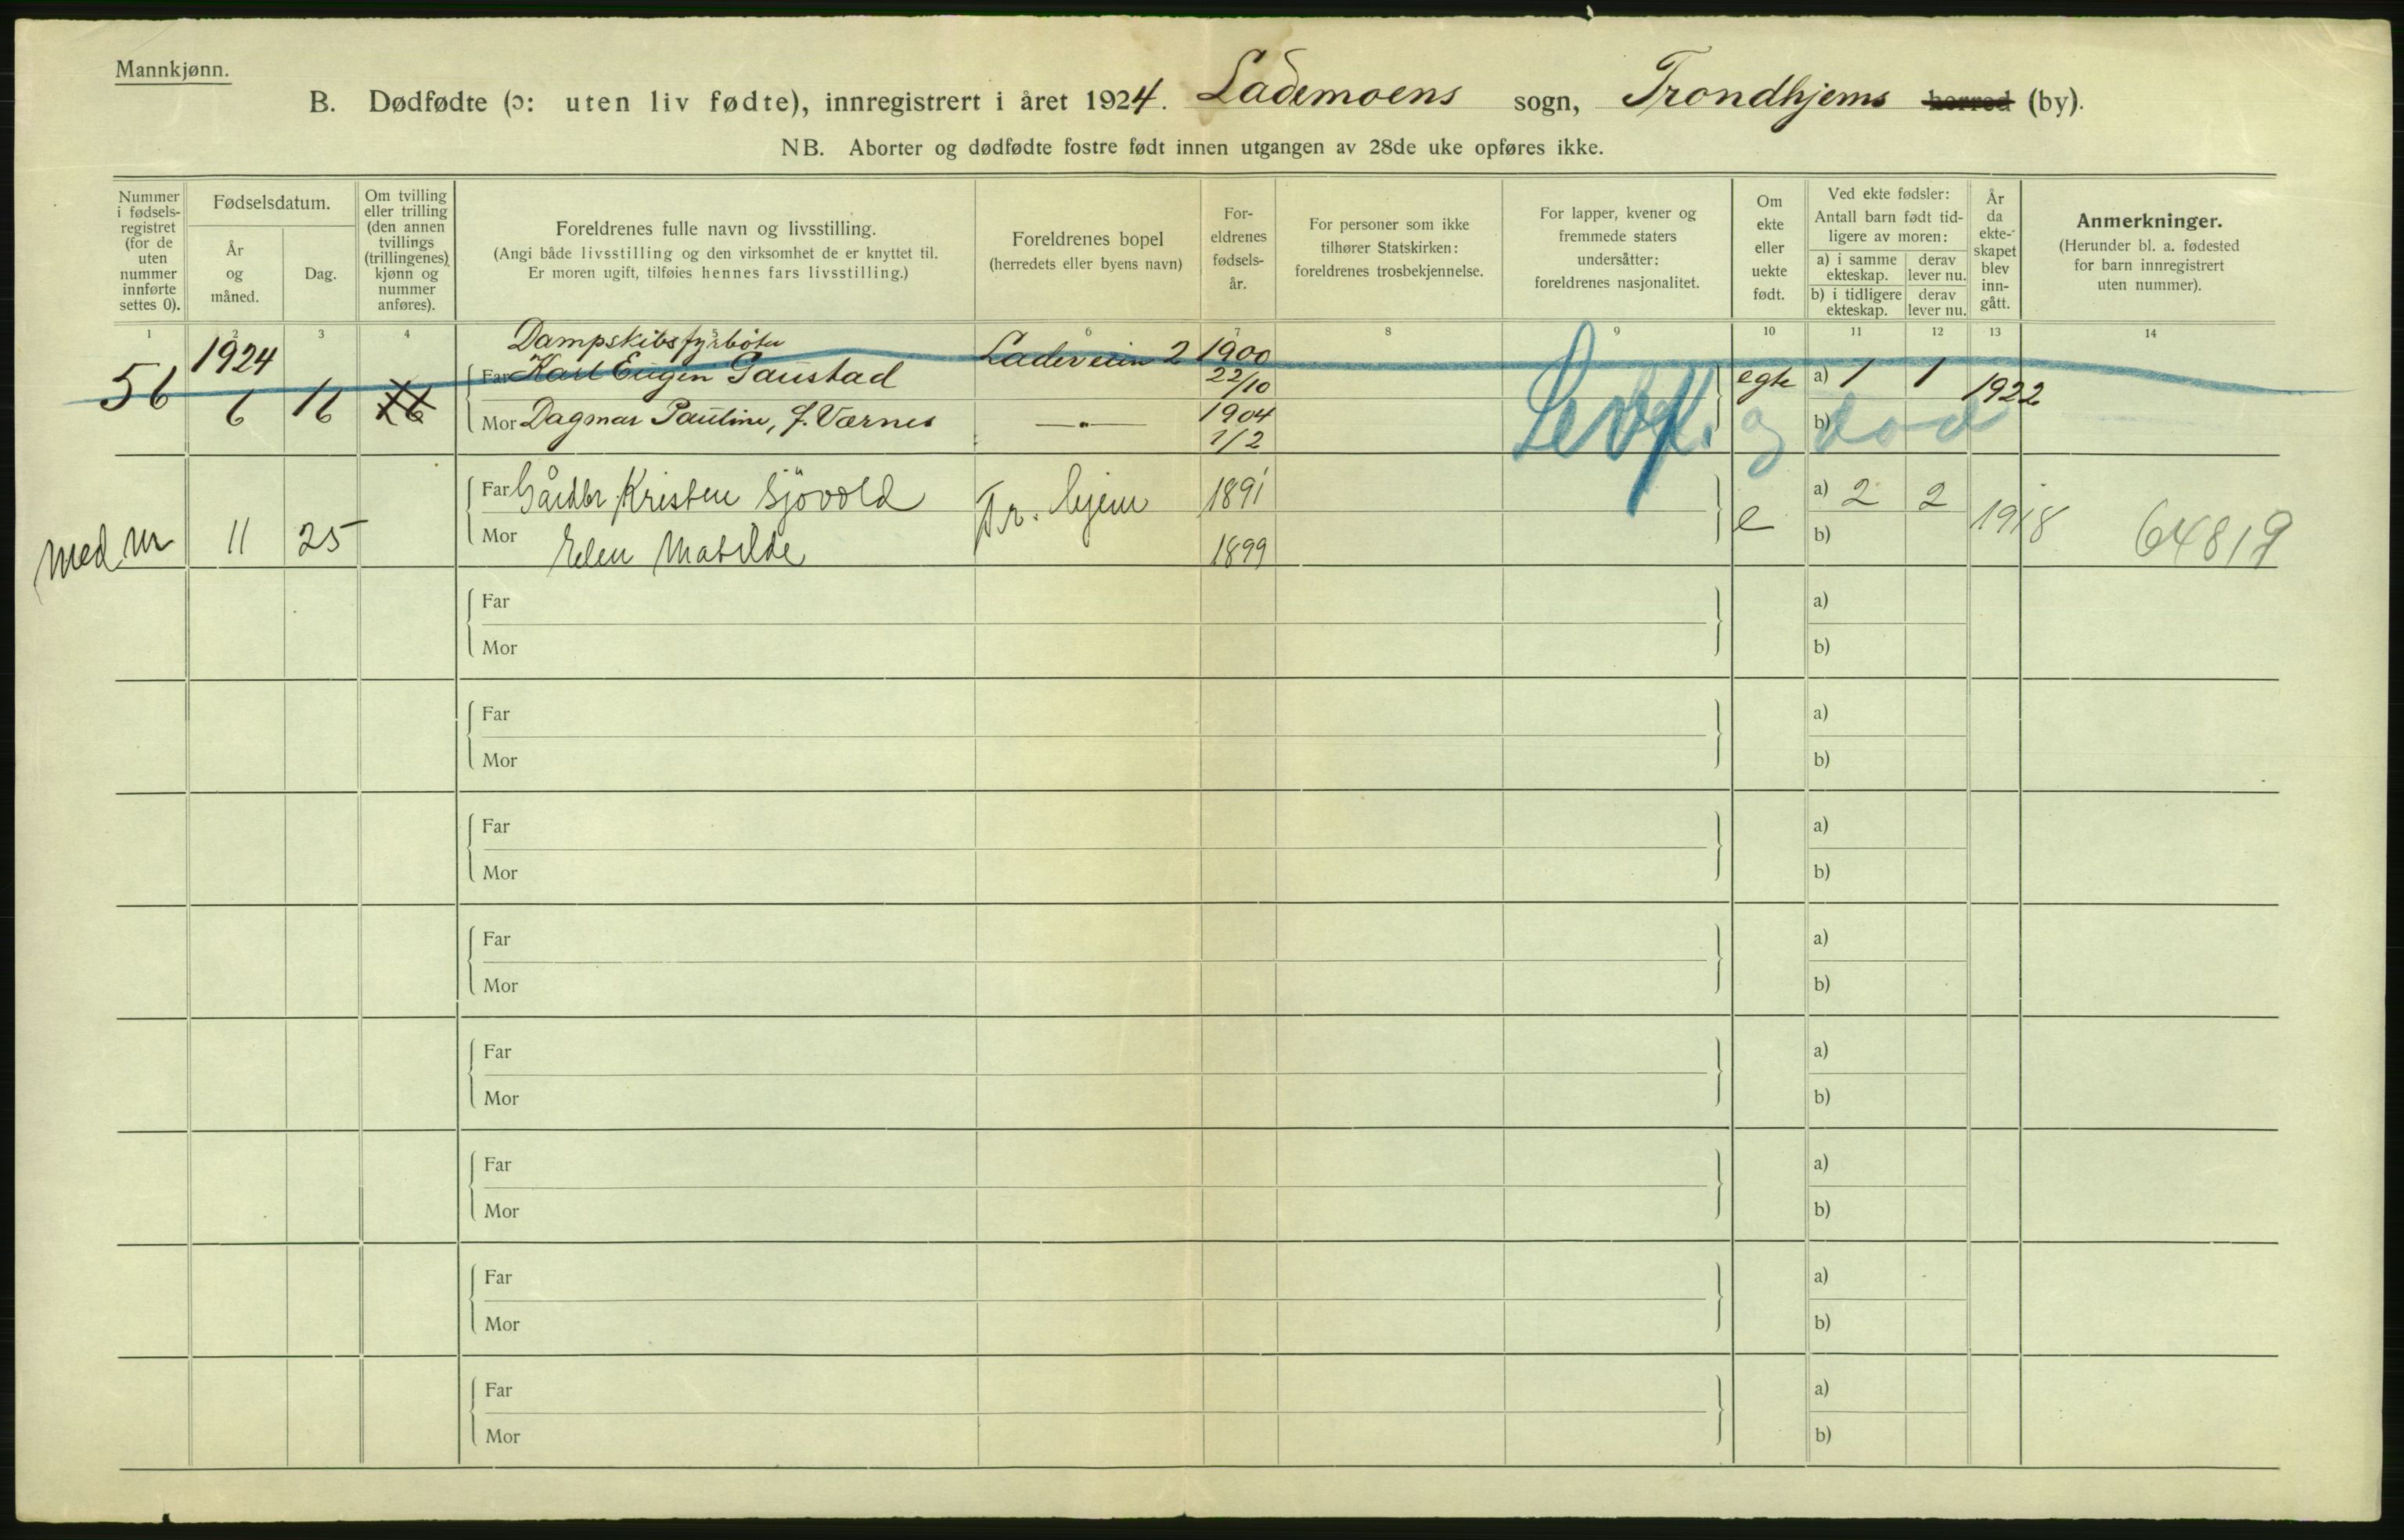 Mannkjønn.
B. Dødfødte (ɔ: uten liv fødte), innregistrert i året 1924. Lademoens sogn, Trondhjems herred (by).
NB. Aborter og dødfødte fostre født innen utgangen av 28de uke opføres ikke.
Nummer i fødsels- registret (for de uten nummer innførte settes 0).
Fødselsdatum.
År og måned.
Dag.
Om tvilling eller trilling (den annen tvillings (trillingenes) kjønn og nummer anføres).
Foreldrenes fulle navn og livsstilling.
(Angi både livsstilling og den virksomhet de er knyttet til.
Er moren ugift, tilføies hennes fars livsstilling.)
Foreldrenes bopel
(herredets eller byens navn)
For- eldrenes fødsels- år.
For personer som ikke tilhører Statskirken: foreldrenes trosbekjennelse.
For lapper, kvener og fremmede staters undersåtter: foreldrenes nasjonalitet.
Om ekte eller uekte født.
Ved ekte fødsler:
Antall barn født tid- ligere av moren:
a) i samme ekteskap.
derav lever nu.
b) i tidligere ekteskap.
derav lever nu.
År da ekte- skapet blev inn- gått.
Anmerkninger.
(Herunder bl. a. fødested for barn innregistrert uten nummer).
1 2 3 4 5 6 7 8 9 10 11 12 13 14
Dampskibsfyrbøter
56 1924 6 16 16
Far Karl Eugen Gaustad Ladeveien 2 1900 22/10
Mor Dagmar Pauline, f. Værnes —"— 1904 1/2
egte a) 1 1 1922
b)
Lev.f. og død
Med nr 11 25
Far Gårdbr Kristen Sjövold Tr.hjem 1891
Mor Elen Matilde 1899
e a) 2 2 1918 64819
b)
Far a)
Mor b)
Far a)
Mor b)
Far a)
Mor b)
Far a)
Mor b)
Far a)
Mor b)
Far a)
Mor b)
Far a)
Mor b)
Far a)
Mor b)